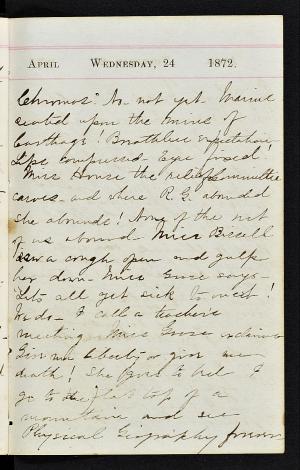 April Wednesday, 24 1872.
Chromos". No - not yet. Marius
seated upon the ruins of
Carthage! Breathless expectation
Lips compressed - Eyes fixed!
Miss House the relief Committee
caves - and where R. G. abounded
she abounds! None of the rest
of us abound. Miss Bissell
a cough open and gulps
her down - Miss Grose says -
Let's all get sick to meet!
We do - I call a teachers
meeting. Miss Grose exclaims
Give me liberty or give me
death! She goes to bed I
go to the flat top of a
mountain and see
Physical Geography forever